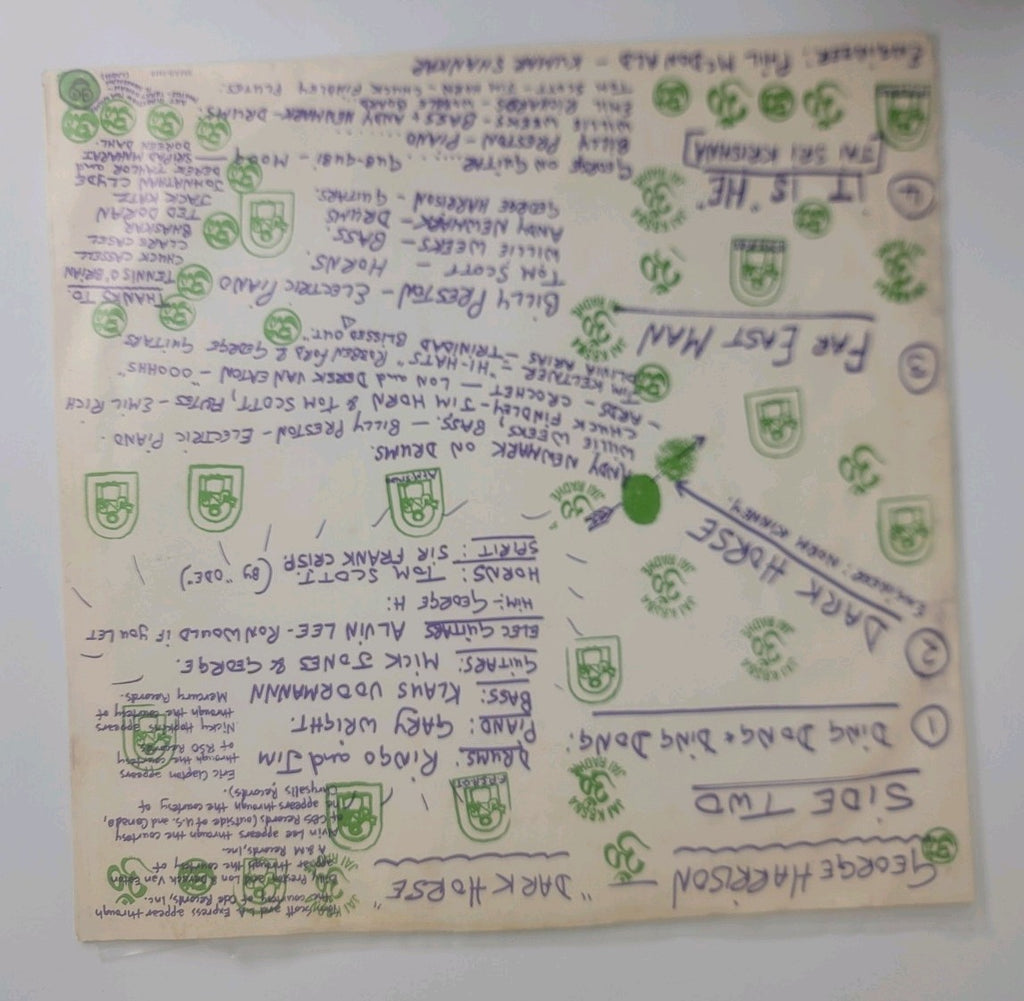 GEORGE HARRISON — "DARK HORSE"
SIDE TWO
① DING DONG • DING DONG:
DRUMS: RINGO and JIM
PIANO: GARY WRIGHT.
BASS: KLAUS VOORMANN
GUITARS: MICK JONES & GEORGE.
ELEC GUITARS ALVIN LEE - RON WOULD IF YOU LET
HIM:- GEORGE H:
HORNS: TOM SCOTT. (BY "ODE")
SPIRIT: SIR FRANK CRISP.
Tom Scott and L.A. Express appear through
the courtesy of Ode Records, Inc.
Billy Preston and Lon & Derrek Van Eaton
appear through the courtesy of
A&M Records, Inc.
Alvin Lee appears through the courtesy
of CBS Records (outside of U.S. and Canada,
he appears through the courtesy of
Chrysalis Records).
Eric Clapton appears
through the courtesy
of RSO Records
Nicky Hopkins appears
through the courtesy of
Mercury Records.
② DARK HORSE
ENGINEER: NORM KINNEY.
ANDY NEWMARK ON DRUMS.
WILLIE WEEKS, BASS. — BILLY PRESTON - ELECTRIC PIANO.
- CHUCK FINDLEY - JIM HORN & TOM SCOTT, FLUTES - EMIL RICH
ARDS - CROCHET — LON and DEREK VAN EATON - "OOOHHS"
JIM KELTNER = "HI-HATS" ROBBEN FORD & GEORGE GUITARS
OLIVIA ARIAS - TRINIDAD BLISSED OUT."
③ FAR EAST MAN
BILLY PRESTON - ELECTRIC PIANO
TOM SCOTT - HORNS.
WILLIE WEEKS - BASS.
ANDY NEWMARK - DRUMS
GEORGE HARRISON - GUITARS.
THANKS TO.
TENNIS O'BRIAN
CHUCK CASSELL
CLARE CASSEL
BHASKAR
TED DORIAN
JACK KATZ
JOHNATHAN CLYDE
DEREK TAYLOR and
SRIPAD MAHARAJ
DOREEN DAHL.
④ IT IS "HE"
[JAI SRI KRISHNA]
GEORGE ON GUITAR ...... GUB-GUBI - MOOG
BILLY PRESTON - PIANO ......
WILLIE WEEKS - BASS & ANDY NEWMARK - DRUMS.
EMIL RICHARDS - WOBBLE BOARD
TOM SCOTT - JIM HORN - CHUCK FINDLEY FLUTES.
ENGINEER: PHIL McDONALD - KUMAR SHANKAR
JAI KRSNA
JAI RADHE